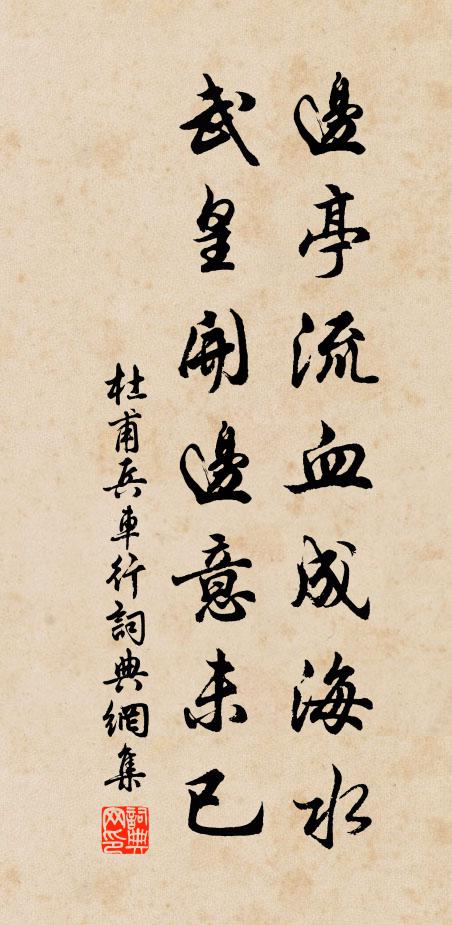 邊亭流血成海水
武皇開邊意未已
杜甫兵車行詞典網集
詞典
网印